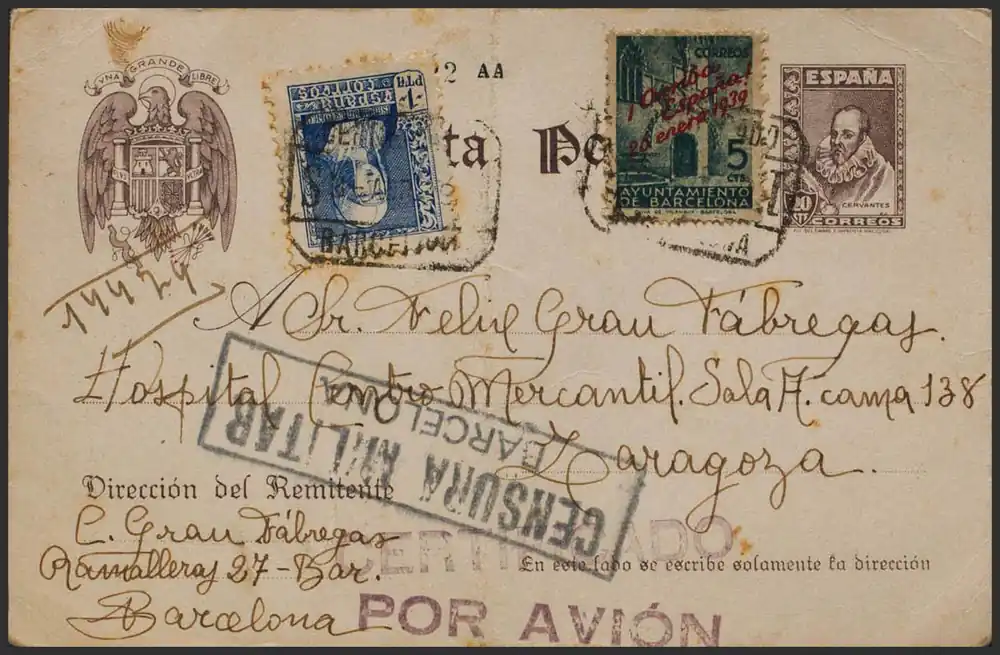 UNA GRANDE LIBRE
PLVS VLTRA
2 AA
ta Po
1 PTA
CORREOS
ESPAÑA
CORREOS
¡Arriba
España!
26 enero 1939
5
CTS
AYUNTAMIENTO
DE BARCELONA
ESPAÑA
CERVANTES
20
CORREOS
BARCELONA
A Sr. Felix Grau Fábregas.
Hospital Centro Mercantil. Sala A. cama 138
Zaragoza.
CENSURA MILITAR
BARCELONA
Dirección del Remitente
C. Grau Fábregas
Ramalleras 27 - Bar.
Barcelona
CERTIFICADO
En este lado se escribe solamente la dirección
POR AVIÓN